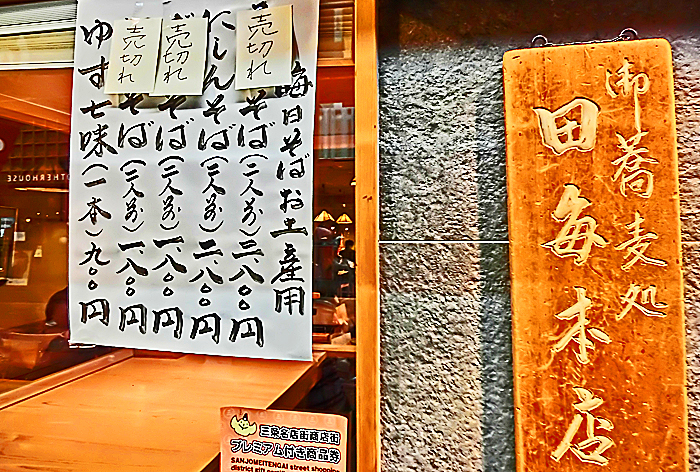 御蕎麦処
田毎本店
晦日そばお土産用
売切れ
そば(二人前)二、八〇〇円
にしんそば(二人前)二、八〇〇円
売切れ
そば(二人前)一、八〇〇円
売切れ
そば(二人前)一、八〇〇円
ゆず七味(一本)九〇〇円
三条名店街商店街
プレミアム付き商品券
SANJOMEITENGAI street shopping
district gift